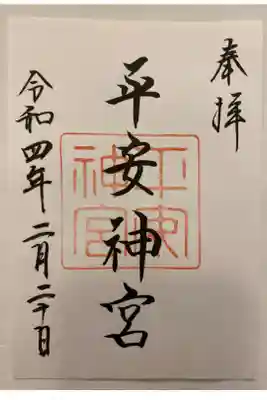 奉拝
平安神宮
平安
神宮
令和四年二月二十日